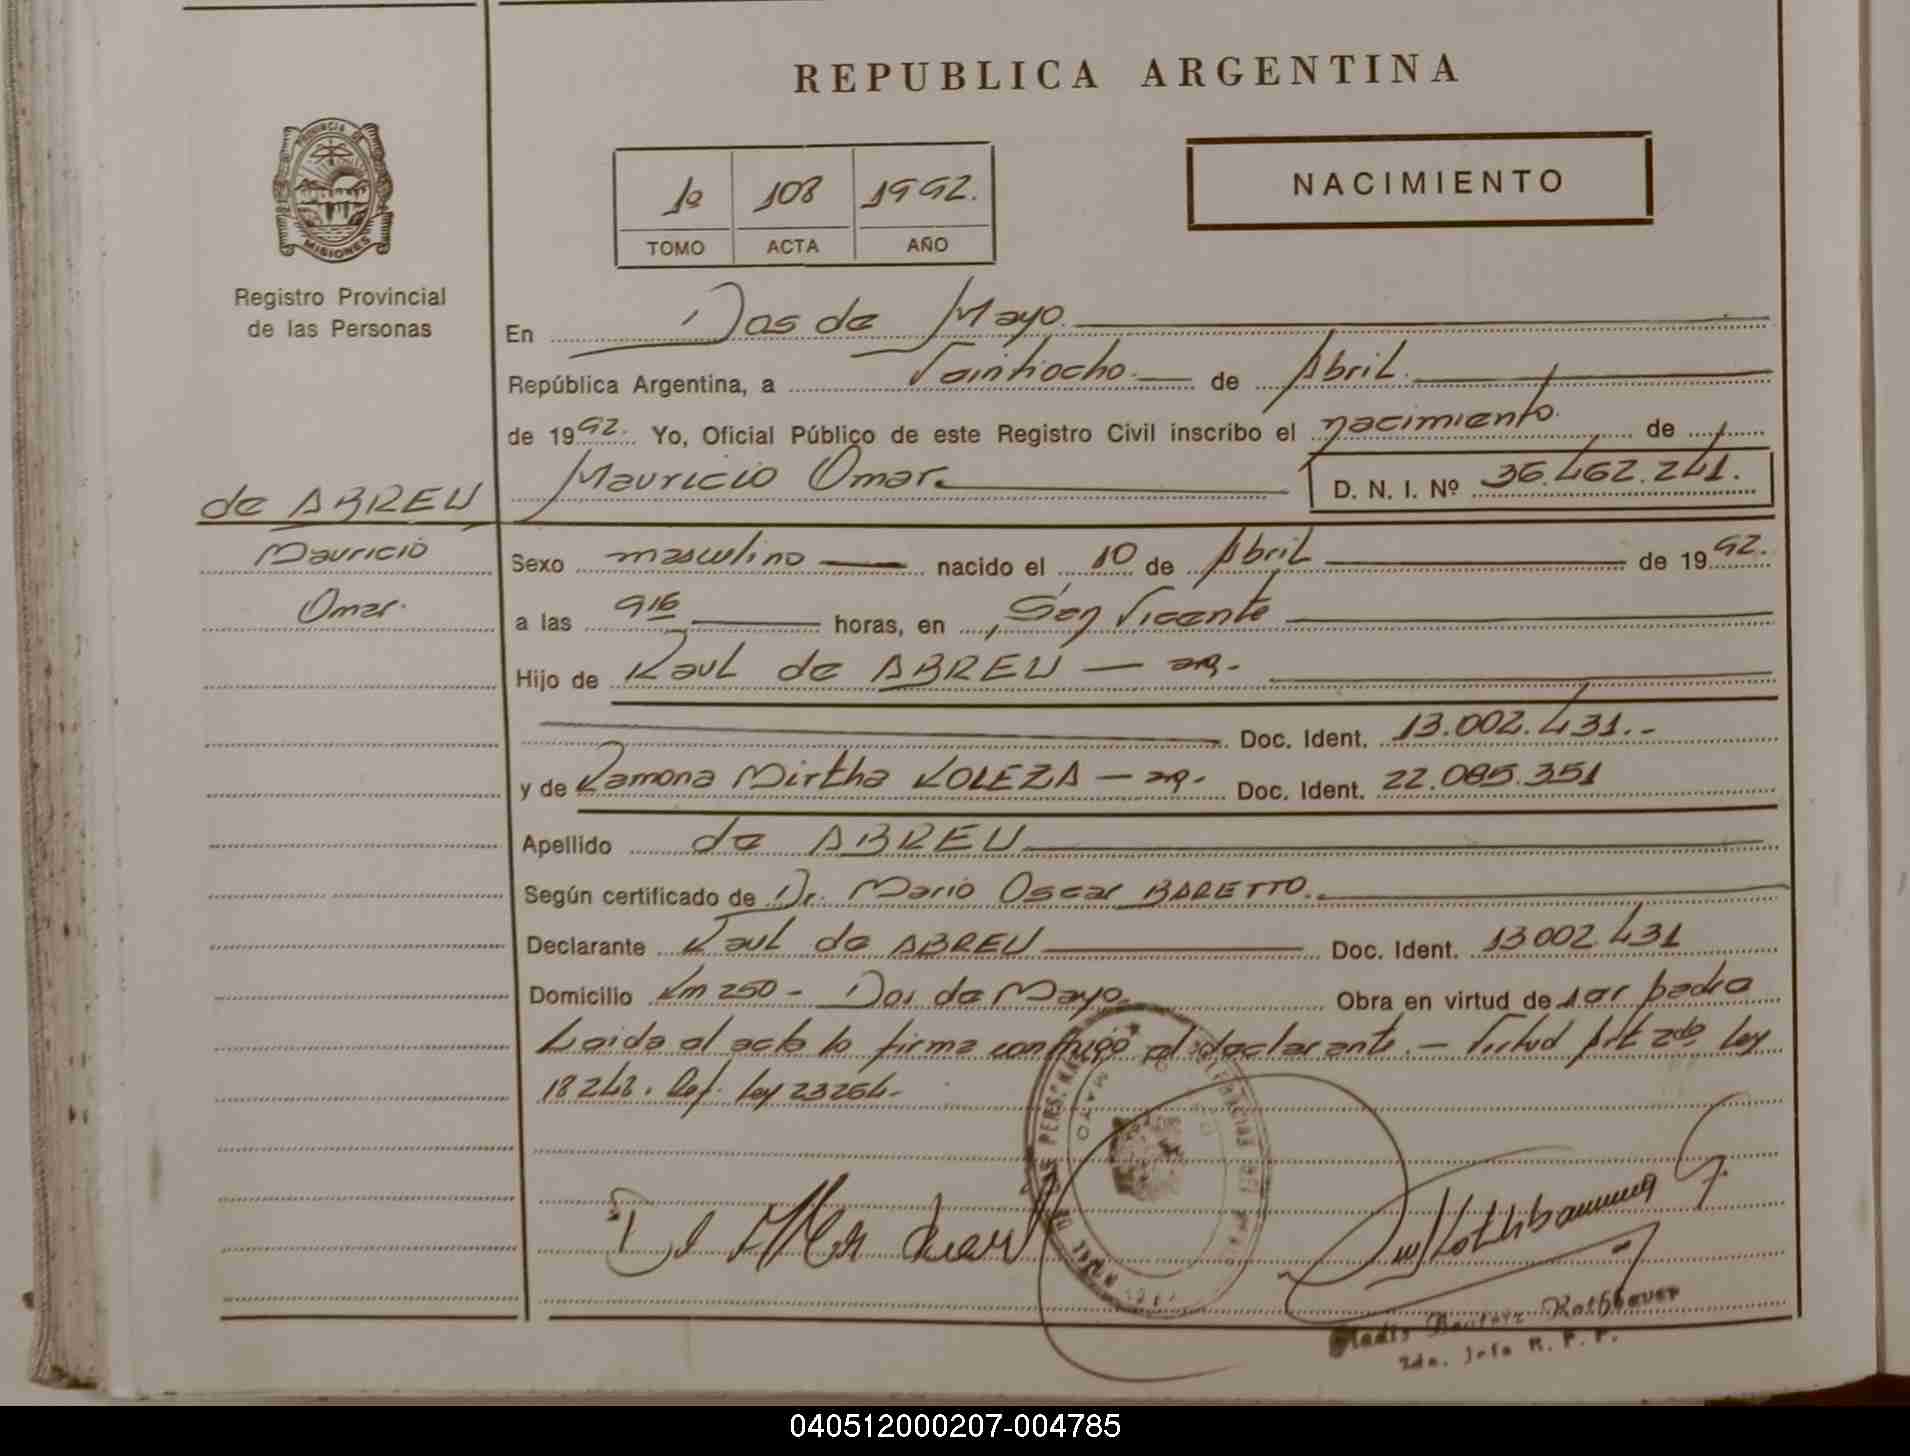 REPUBLICA ARGENTINA
PROVINCIA DE
MISIONES
Registro Provincial
de las Personas
1º 108 1992.
TOMO ACTA AÑO
NACIMIENTO
En Dos de Mayo.
República Argentina, a Vaintiocho. de Abril.
de 1992. Yo, Oficial Público de este Registro Civil inscribo el nacimiento. de
Mauricio Omar. D. N. I. Nº 36.462.241.
de ABREU
Mauricio
Omar.
Sexo masculino nacido el 10 de Abril de 1992.
a las 916 horas, en San Vicente
Hijo de Raul de ABREU — arg.
Doc. Ident. 13.002.431.-
y de Ramona Mirtha KOLEZA — arg. Doc. Ident. 22.085.351
Apellido de ABREU
Según certificado de Dr. Mario Oscar BARETTO.
Declarante Raul de ABREU Doc. Ident. 13002431
Domicilio Km 250 - Dos de Mayo. Obra en virtud de ser padre
Leida el acta lo firma conmigo el declarante. — Virtud Art 2do Ley
18248. Ref. Ley 23264.-
Gladis Beatriz Rothbauer
2da. Jefa R. P. P.
040512000207-004785